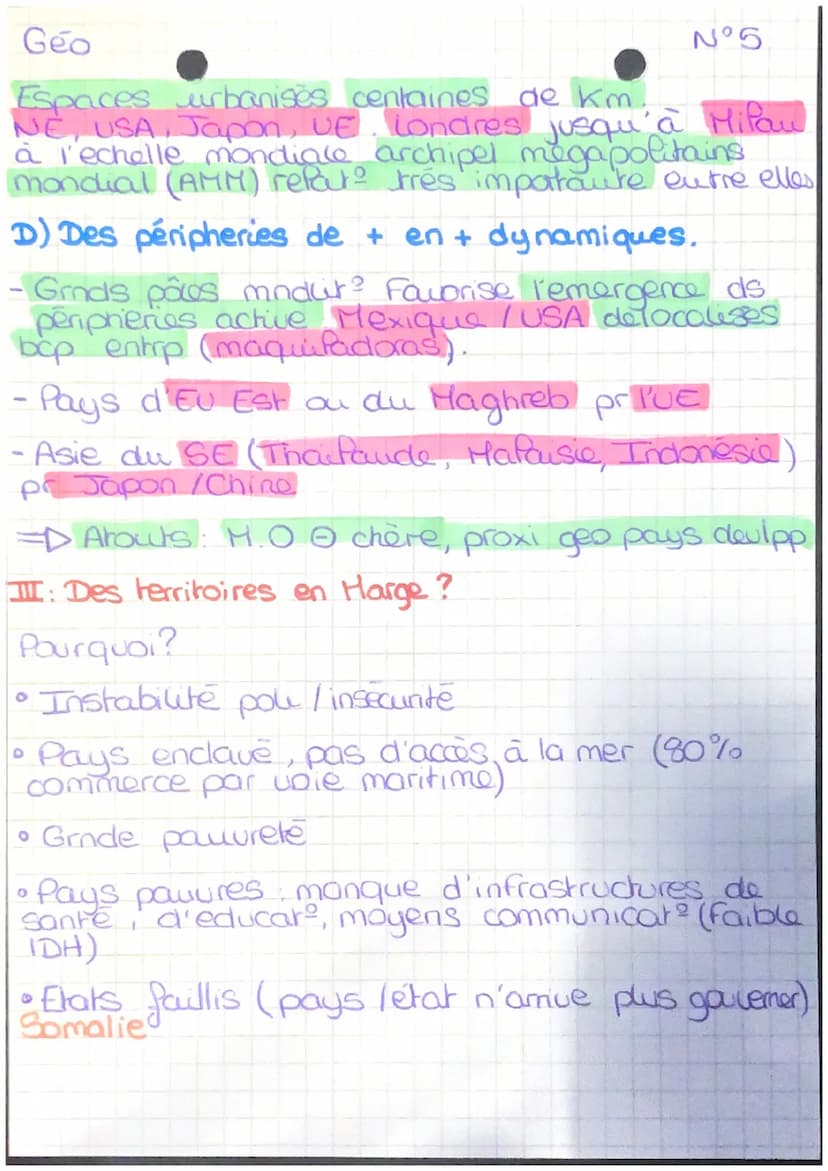 Géo
N°5
Espaces urbanisés centaines de Km.
NE, USA, Japon, UE. Londres jusqu'à Milan
à l'echelle mondiale archipel mégapolitains
mondial (AMM) relat° trés importante entre elles
D) Des péripheries de + en + dynamiques.
- Grnds pôles mndux? Favorise l'emergence ds
péripheries active Mexique / USA délocalises
bcp entrp (maquiladoras).
- Pays d'EU Est ou du Maghreb pr l'UE
- Asie du SE (Thailande, Malaisie, Indonésie)
pr Japon / Chine
=> Atouts: M.O ⊖ chère, proxi géo pays devlpp
III: Des territoires en Marge ?
Pourquoi?
• Instabilité poli / insécurité
• Pays enclavé, pas d'accès à la mer (80%
commerce par voie maritime)
• Grnde pauvreté
• Pays pauvres : manque d'infrastructures de
santé, d'educat°, moyens communicat° (faible
IDH)
• Etats faillis (pays / état n'arrive plus gouverner)
Somalie